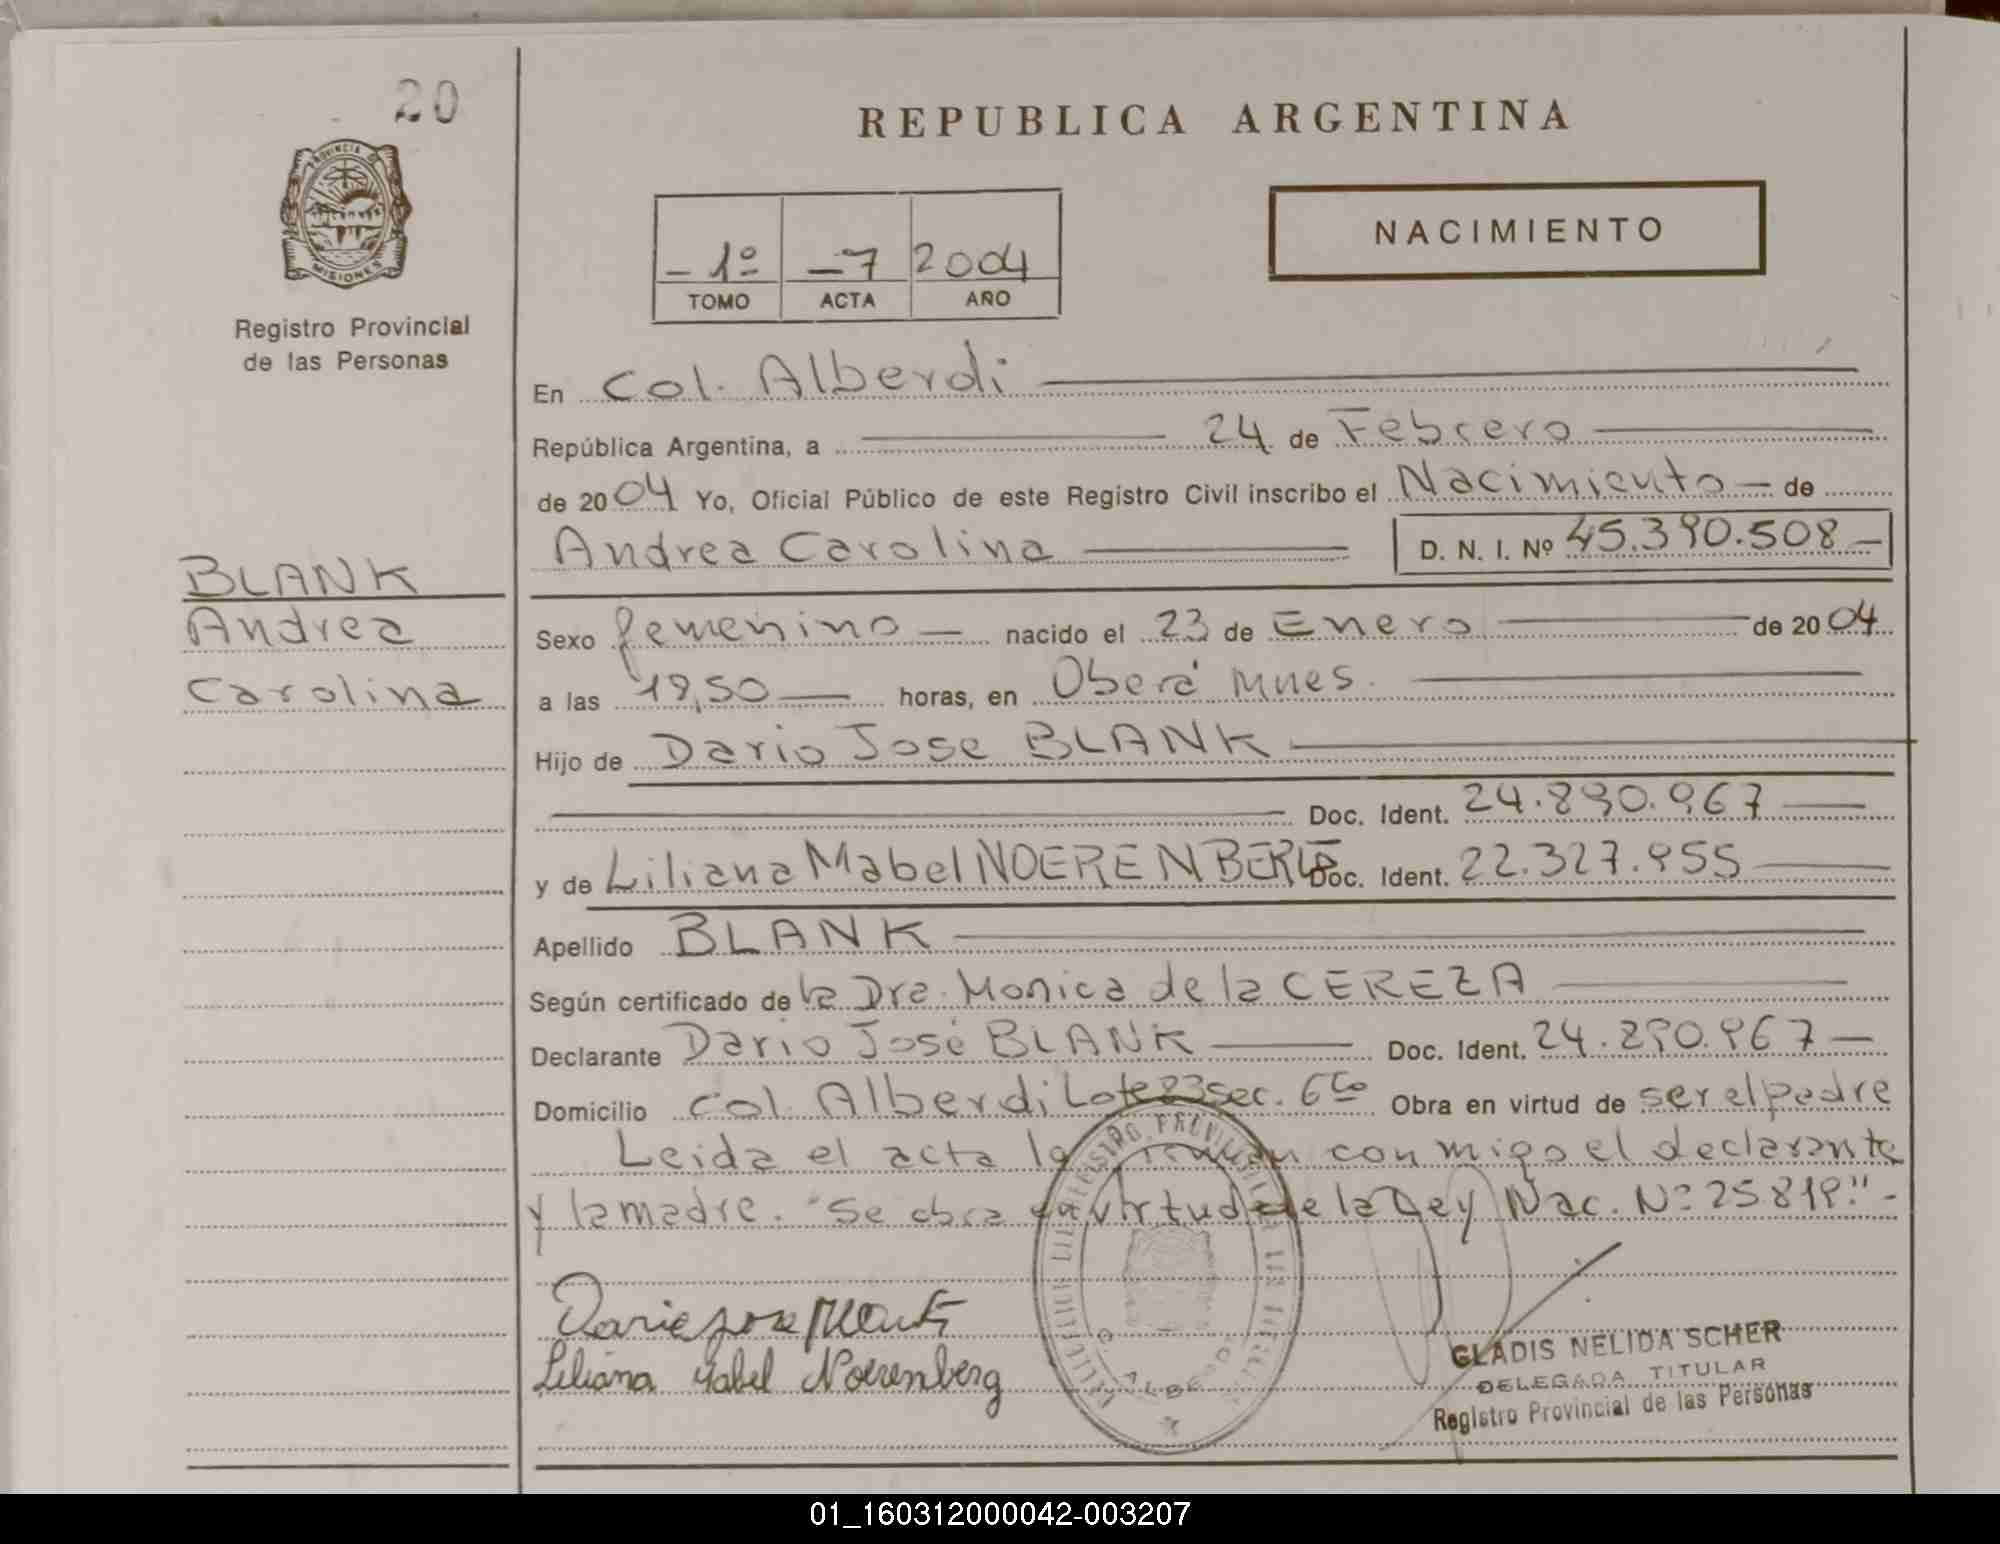 20
PROVINCIA DE
MISIONES
Registro Provincial
de las Personas
REPUBLICA ARGENTINA
- 1º -7 2004
TOMO ACTA AÑO
NACIMIENTO
En Col. Alberdi
República Argentina, a 24 de Febrero
de 2004 Yo, Oficial Público de este Registro Civil inscribo el Nacimiento - de
Andrea Carolina D. N. I. Nº 45.390.508-
BLANK
Andrea
Carolina
Sexo femenino nacido el 23 de Enero de 2004
a las 19,50 horas, en Oberá Mnes.
Hijo de Dario Jose BLANK
Doc. Ident. 24.890.967
y de Liliana Mabel NOERENBERG Doc. Ident. 22.327.955
Apellido BLANK
Según certificado de la Dra. Monica de la CEREZA
Declarante Dario José BLANK Doc. Ident. 24.890.967-
Domicilio Col. Alberdi Lote 23 sec. 6ta Obra en virtud de ser el padre
Leida el acta la firman conmigo el declarante
y la madre. "Se obra en virtud de la Ley Nac. Nº 25819".-
Liliana Mabel Noerenberg
GLADIS NELIDA SCHER
DELEGADA TITULAR
Registro Provincial de las Personas
01_160312000042-003207